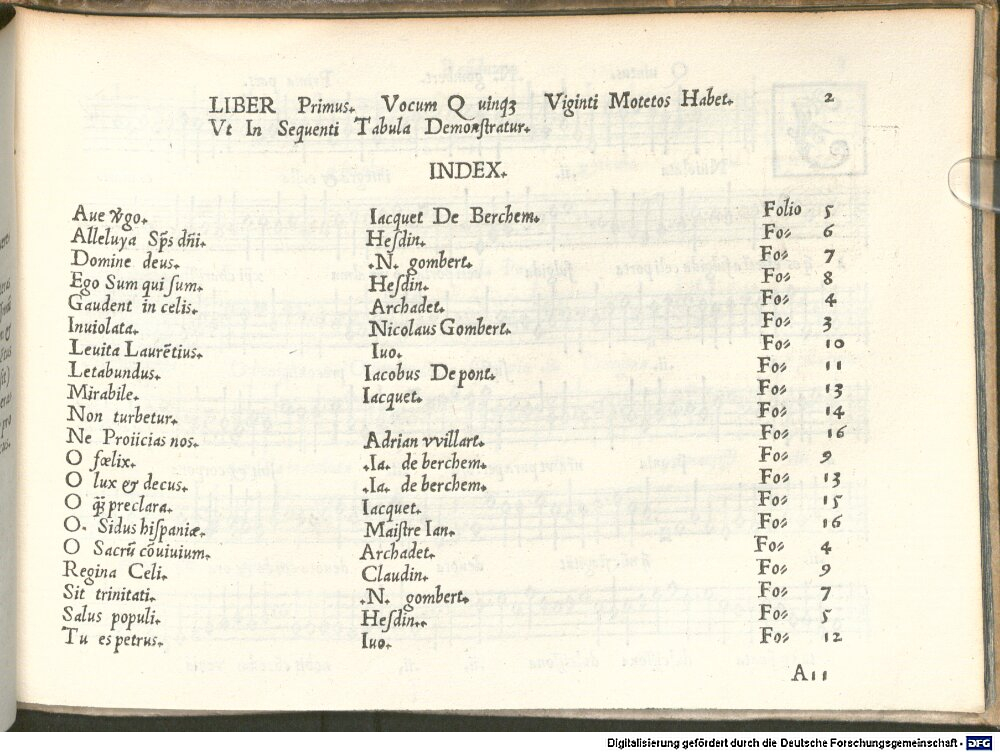 LIBER Primus. Vocum Quinqꝫ Viginti Motetos Habet. 2
Vt In Sequenti Tabula Demonſtratur.
INDEX.
Aue v̄go. Iacquet De Berchem. Folio 5
Alleluya Sp̄s dn̄i. Heſdin. Fo: 6
Domine deus. .N. gombert. Fo: 7
Ego Sum qui ſum. Heſdin. Fo: 8
Gaudent in celis. Archadet. Fo: 4
Inuiolata. Nicolaus Gombert. Fo: 3
Leuita Laurētius. Iuo. Fo: 10
Letabundus. Iacobus De pont. Fo: 11
Mirabile. Iacquet. Fo: 13
Non turbetur. Fo: 14
Ne Proiicias nos. Adrian vvillart. Fo: 16
O fœlix. .Ia. de berchem. Fo: 9
O lux & decus. .Ia. de berchem. Fo: 13
O q̄ preclara. Iacquet. Fo: 15
O. Sidus hiſpaniæ. Maiſtre Ian. Fo: 16
O Sacrū cōuiuium. Archadet. Fo: 4
Regina Celi. Claudin. Fo: 9
Sit trinitati. .N. gombert. Fo: 7
Salus populi. Heſdin.. Fo: 5
Tu es petrus. Iuo. Fo: 12
A11
Digitalisierung gefördert durch die Deutsche Forschungsgemeinschaft - DFG